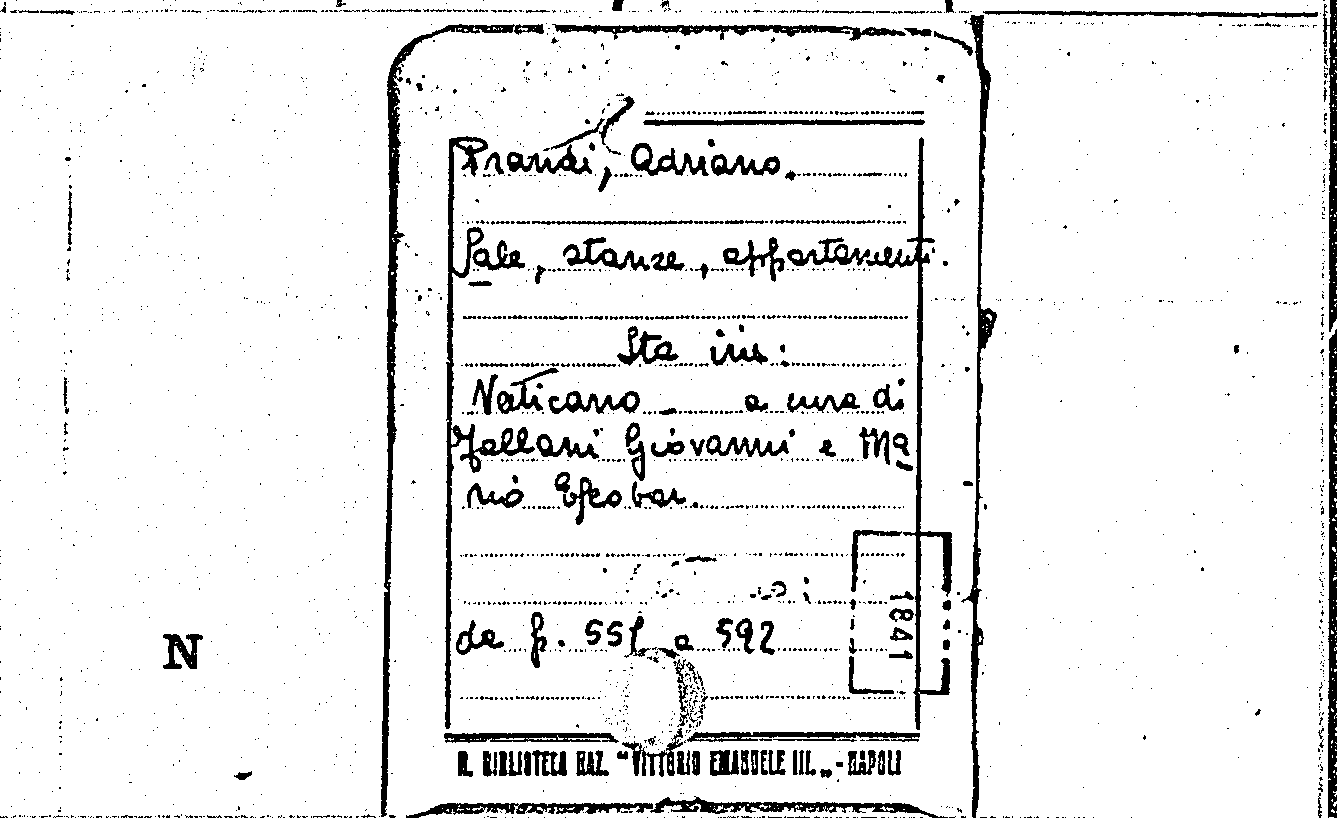 Prandi, Adriano.
Sale, stanze, appartamenti.
Sta in:
Vaticano - a cura di
Fallani Giovanni e Ma
rio Escobar.
da p. 551 a 592
1841
N
R. BIBLIOTECA NAZ. "VITTORIO EMANUELE III." - NAPOLI